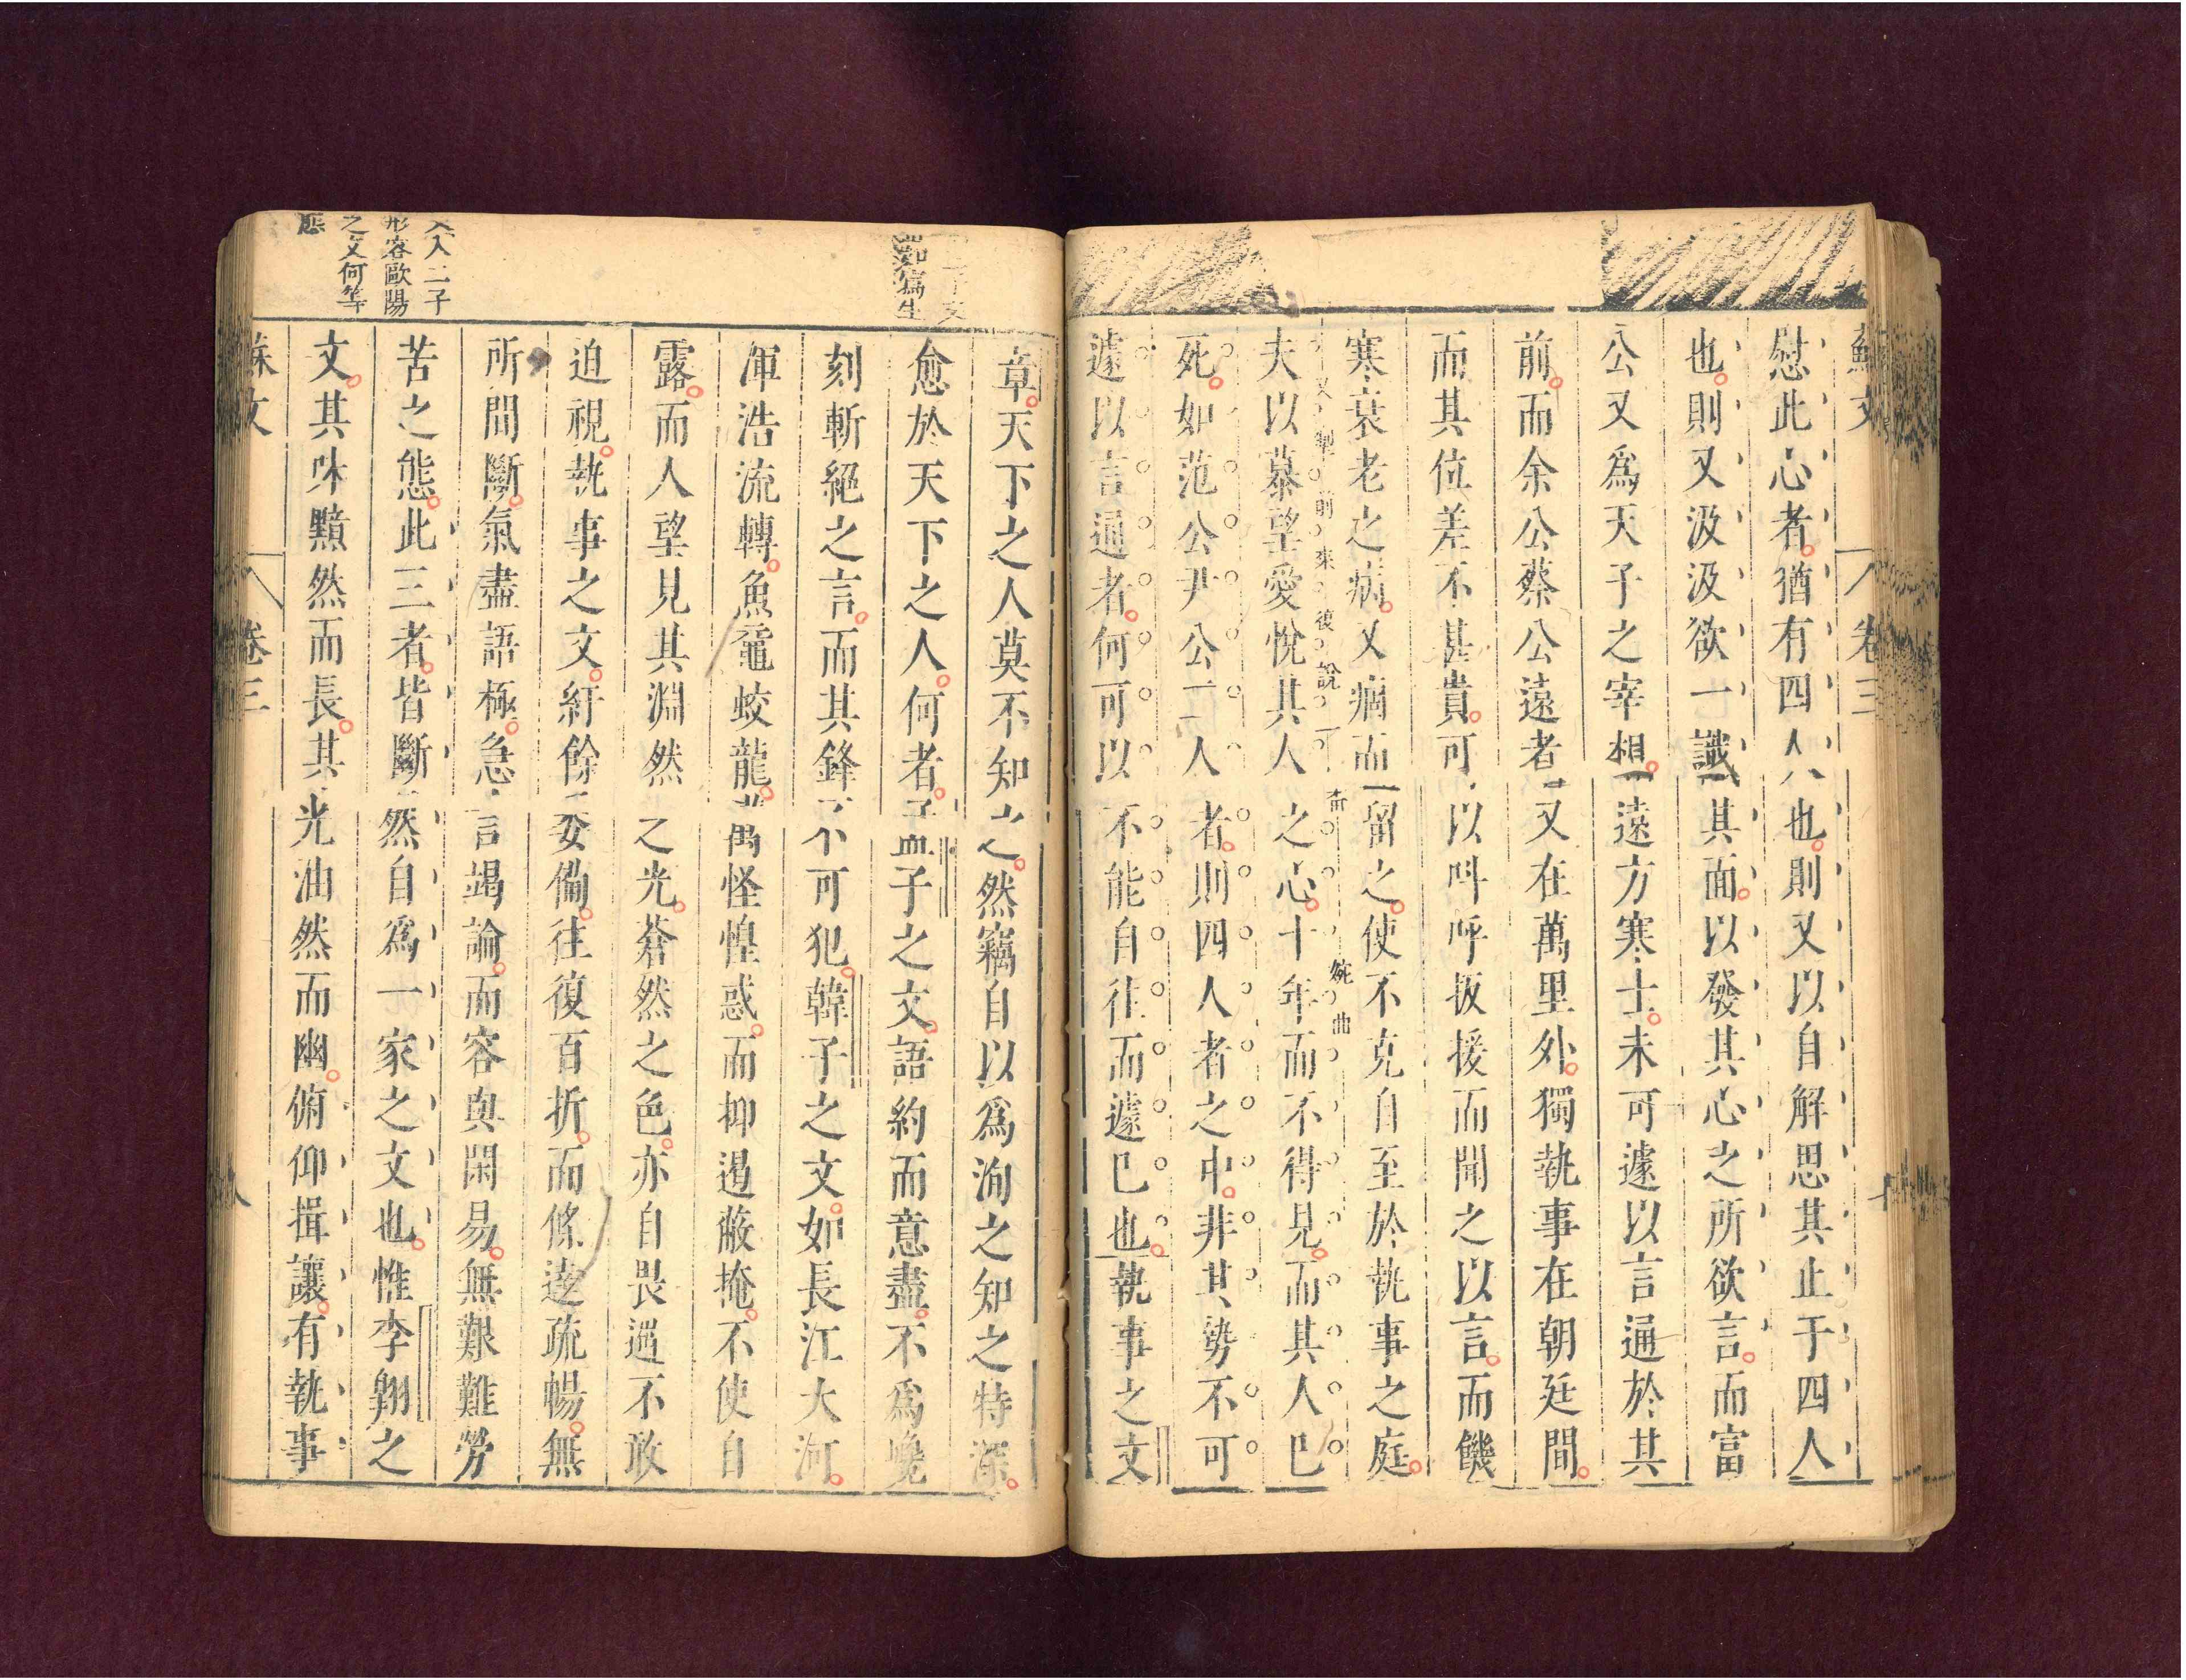 蘇文 卷三
慰此心者猶有四人也則又以自解思其止于四人
也則又汲汲欲一識其面以發其心之所欲言而富
公又爲天子之宰相遠方寒士未可遽以言通於其
前而余公蔡公遠者又在萬里外獨執事在朝廷間
而其位差不甚貴可以呌呼扳援而聞之以言而饑
寒衰老之病又痼而留之使不克自至於執事之庭
又 前來復說一
夫以慕望愛悅其人之心十年而不得見而其人已
婉曲
死如范公尹公二人者則四人者之中非其勢不可
遽以言通者何可以不能自往而遽已也執事之文
如寫生
章天下之人莫不知之然竊自以爲洵之知之特深
愈於天下之人何者孟子之文語約而意盡不爲巉
刻斬絕之言而其鋒不可犯韓子之文如長江大河
渾浩流轉魚黿蛟龍萬怪惶惑而抑遏蔽掩不使自
露而人望見其淵然之光蒼然之色亦自畏避不敢
迫視執事之文紆餘委備往復百折而條達疏暢無
所間斷氣盡語極急言竭論而容與閑易無艱難勞
苦之態此三者皆斷然自爲一家之文也惟李翱之
文其味黯然而長其光油然而幽俯仰揖讓有執事
入二子
形容歐陽
之文何等
蘇文 卷三 八